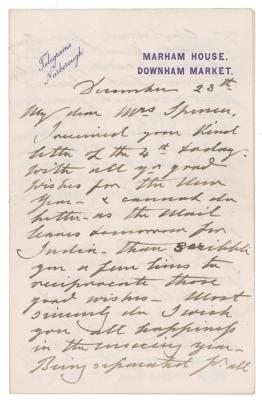 Telegrams
Narborough
MARHAM HOUSE,
DOWNHAM MARKET.
December 23th
My dear Mrs Spencer,
I received your kind
letter of the 4th today
with all yr good
wishes for the New
Year - & cannot do
better - as the Mail
leaves tomorrow for
India - than scribble
you a few lines to
reciprocate those
good wishes - Most
sincerely do I wish
you all happiness
in the ensuing year -
Being separated fr. all